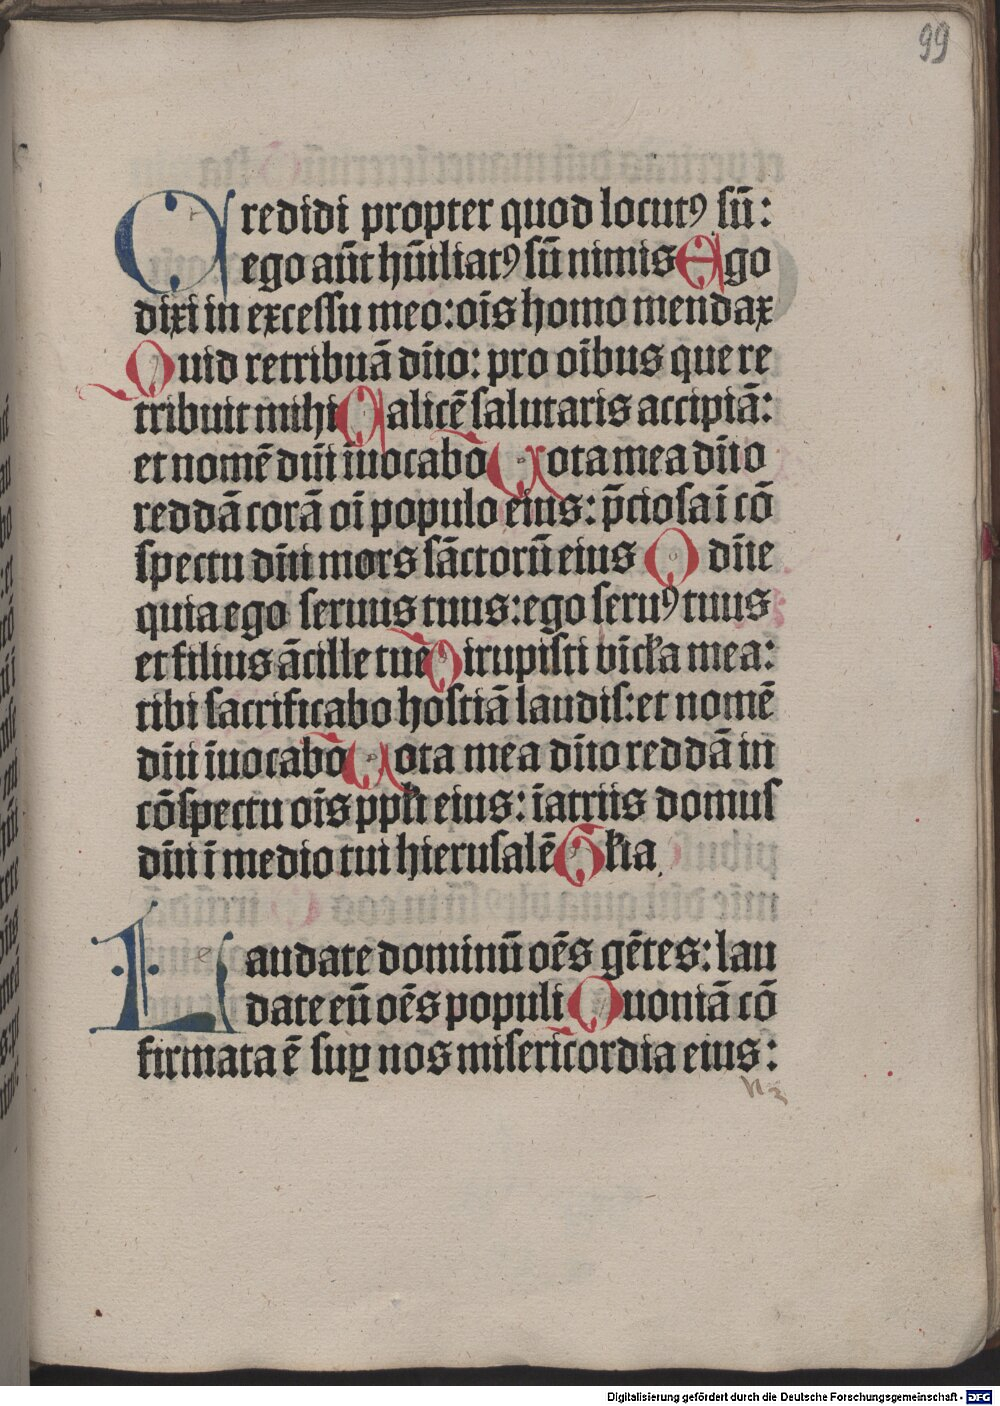 99
Credidi propter quod locutꝰ sū:
ego aūt hūiliatꝰ sū nimis Ego
dixi in excessu meo: oīs homo mendax
Quid retribuā dño: pro oībus que re
tribuit mihi Calicē salutaris accipiā:
et nomē dñi īuocabo Uota mea dño
reddā corā oī populo eius: p̄ciosa ī cō
spectu dñi mors sāctorū eius O dñe
quia ego seruus tuus: ego seruꝰ tuus
et filius ācille tue Dirupisti vīcła mea:
tibi sacrificabo hostiā laudis: et nomē
dñi īuocabo Uota mea dño reddā in
cōspectu oīs ppłi eius: ī atriis domus
dñi ī medio tui hierusalē Głia
Laudate dominū oēs gētes: lau
date eū oēs populi Quoniā cō
firmata ē suꝑ nos misericordia eius:
Digitalisierung gefördert durch die Deutsche Forschungsgemeinschaft - DFG